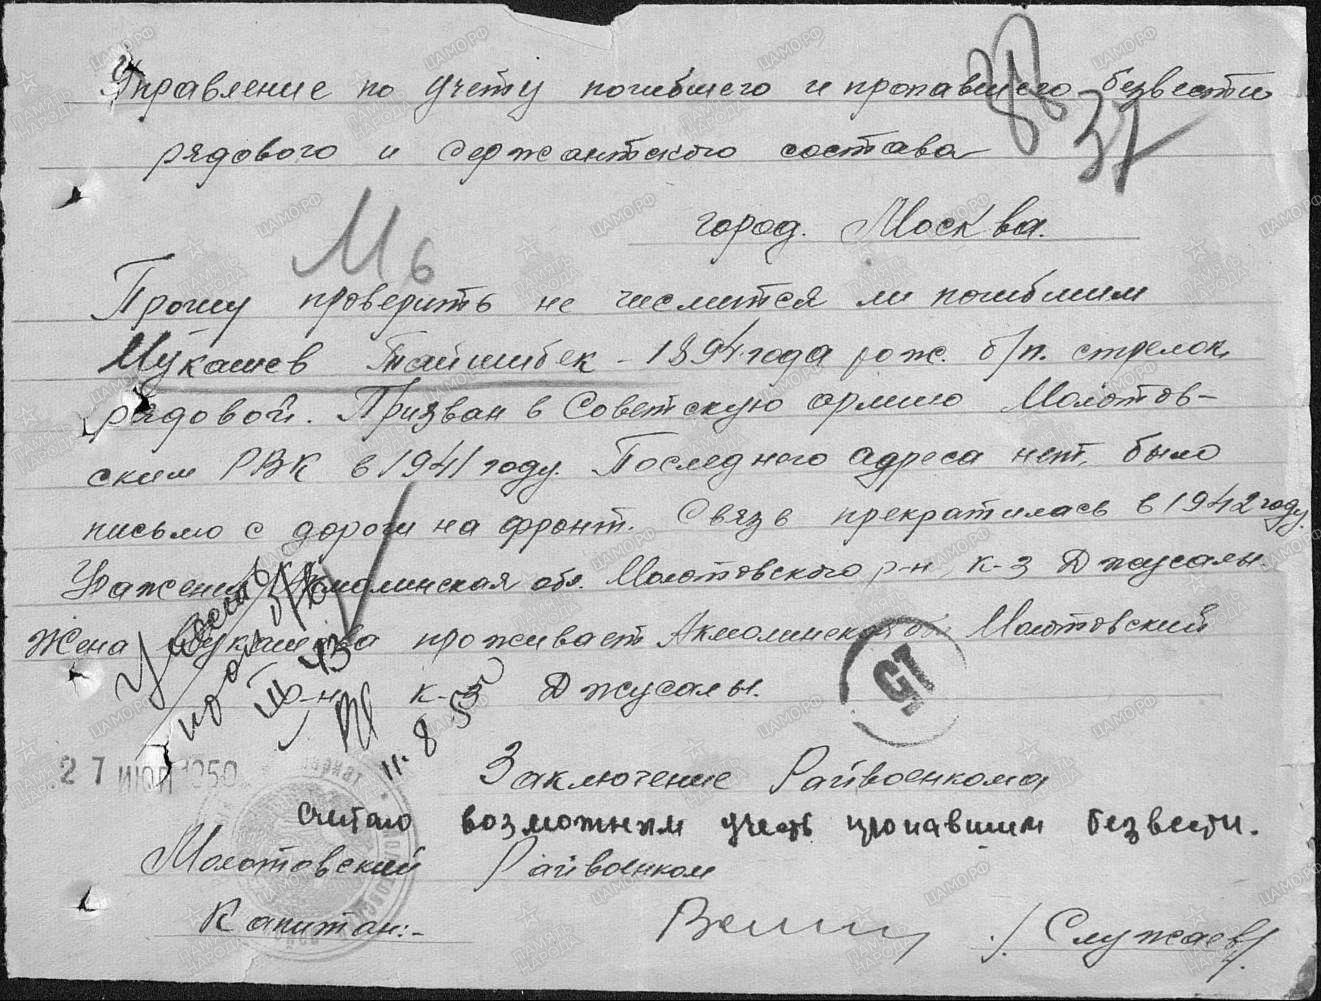 Управление по учету погибшего и пропавшего безвести
рядового и сержантского состава
37
город. Москва.
М6
Прошу проверить не числится ли погибшим
Мукашев Тайшибек - 1894 года рож. б/п. стрелок,
рядовой. Призван в Советскую армию Молотов-
ским РВК в 1941 году. Последнего адреса нет, было
письмо с дороги на фронт. Связь прекратилась в 1942 году.
Уроженец Акмолинская обл. Молотовского р-н, к-з Джусалы.
Жена Мукашева проживает Акмолинская обл Молотовский
р-н к-з Джусалы.
III 43
11.8.50г
27 ИЮЛ 1950
Заключение Райвоенкома
Считаю возможным учесть пропавшим безвести.
Молотовский Райвоенком
Капитан:-
/Служаев/